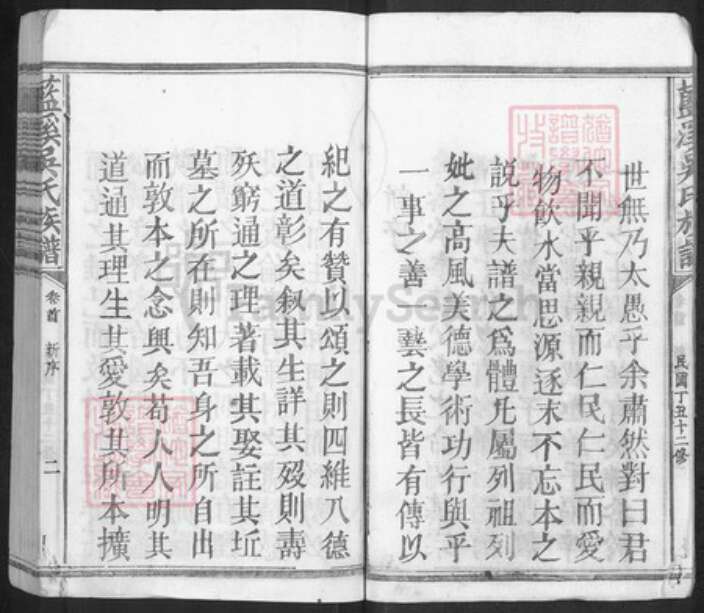 世無乃太愚乎余肅然對曰君
不聞乎親親而仁民仁民而愛
物飲水當思源逐末不忘本之
說乎夫譜之為體凡屬列祖列
妣之高風美德學術功行與乎
一事之善 藝之長皆有傳以
民國丁丑十二修
紀之有贊以頌之則四維八德
之道彰矣叙其生詳其歿則壽
殀窮通之理著載其娶註其坵
墓之所在則知吾身之所自出
而敦本之念興矣苟人人明其
道通其理生其愛敦其所本擴
藍溪吳氏族譜
卷首 新序 二
FamilySearch